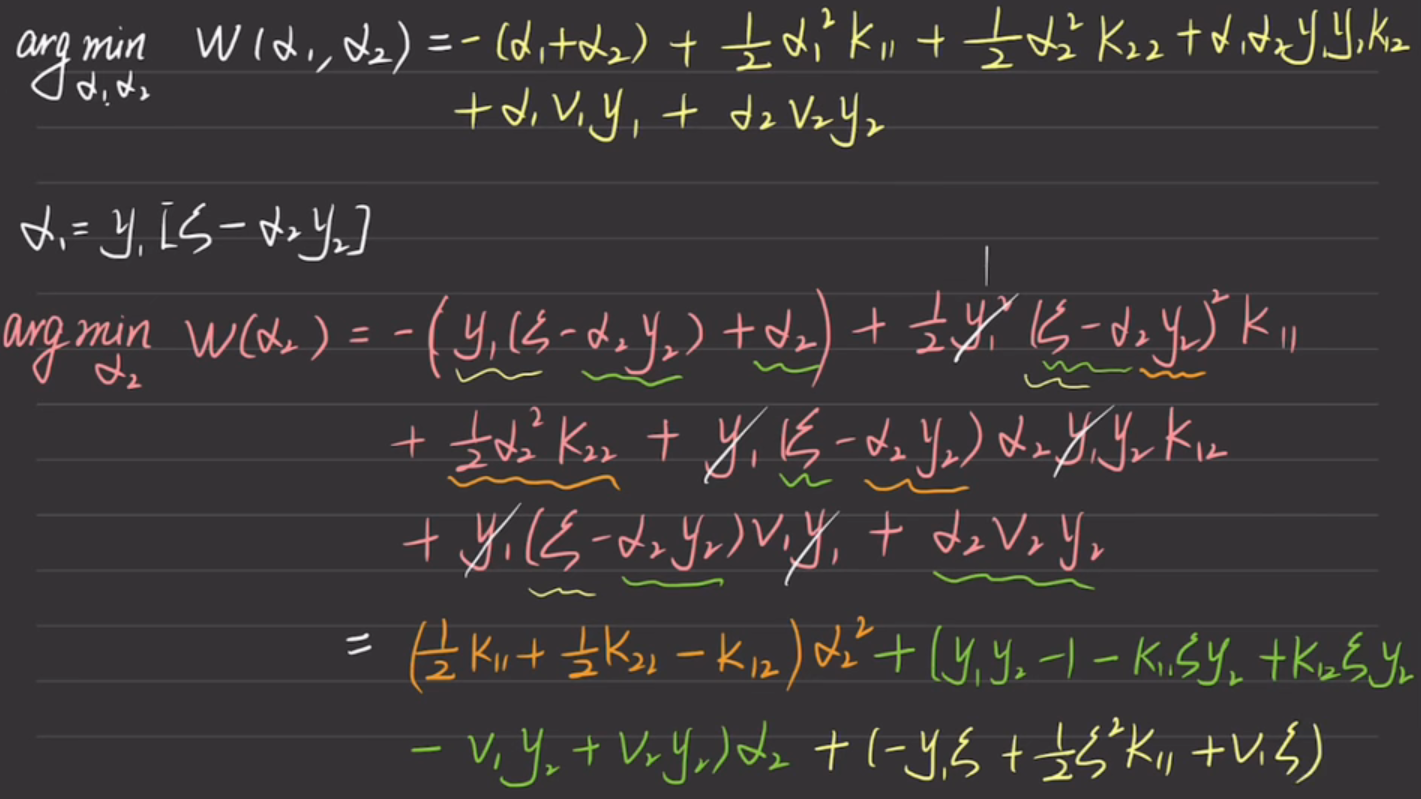 arg min α₁α₂ W(α₁, α₂) = -(α₁+α₂) + ½α₁²K₁₁ + ½α₂²K₂₂ + α₁α₂y₁y₂K₁₂
+ α₁V₁y₁ + α₂V₂y₂
α₁ = y₁[ξ - α₂y₂]
1
arg min α₂ W(α₂) = -(y₁(ξ - α₂y₂) + α₂) + ½y₁²(ξ - α₂y₂)²K₁₁
+ ½α₂²K₂₂ + y₁(ξ - α₂y₂)α₂y₁y₂K₁₂
+ y₁(ξ - α₂y₂)V₁y₁ + α₂V₂y₂
= (½K₁₁ + ½K₂₂ - K₁₂)α₂² + (y₁y₂ - 1 - K₁₁ξy₂ + K₁₂ξy₂
- V₁y₂ + V₂y₂)α₂ + (-y₁ξ + ½ξ²K₁₁ + V₁ξ)